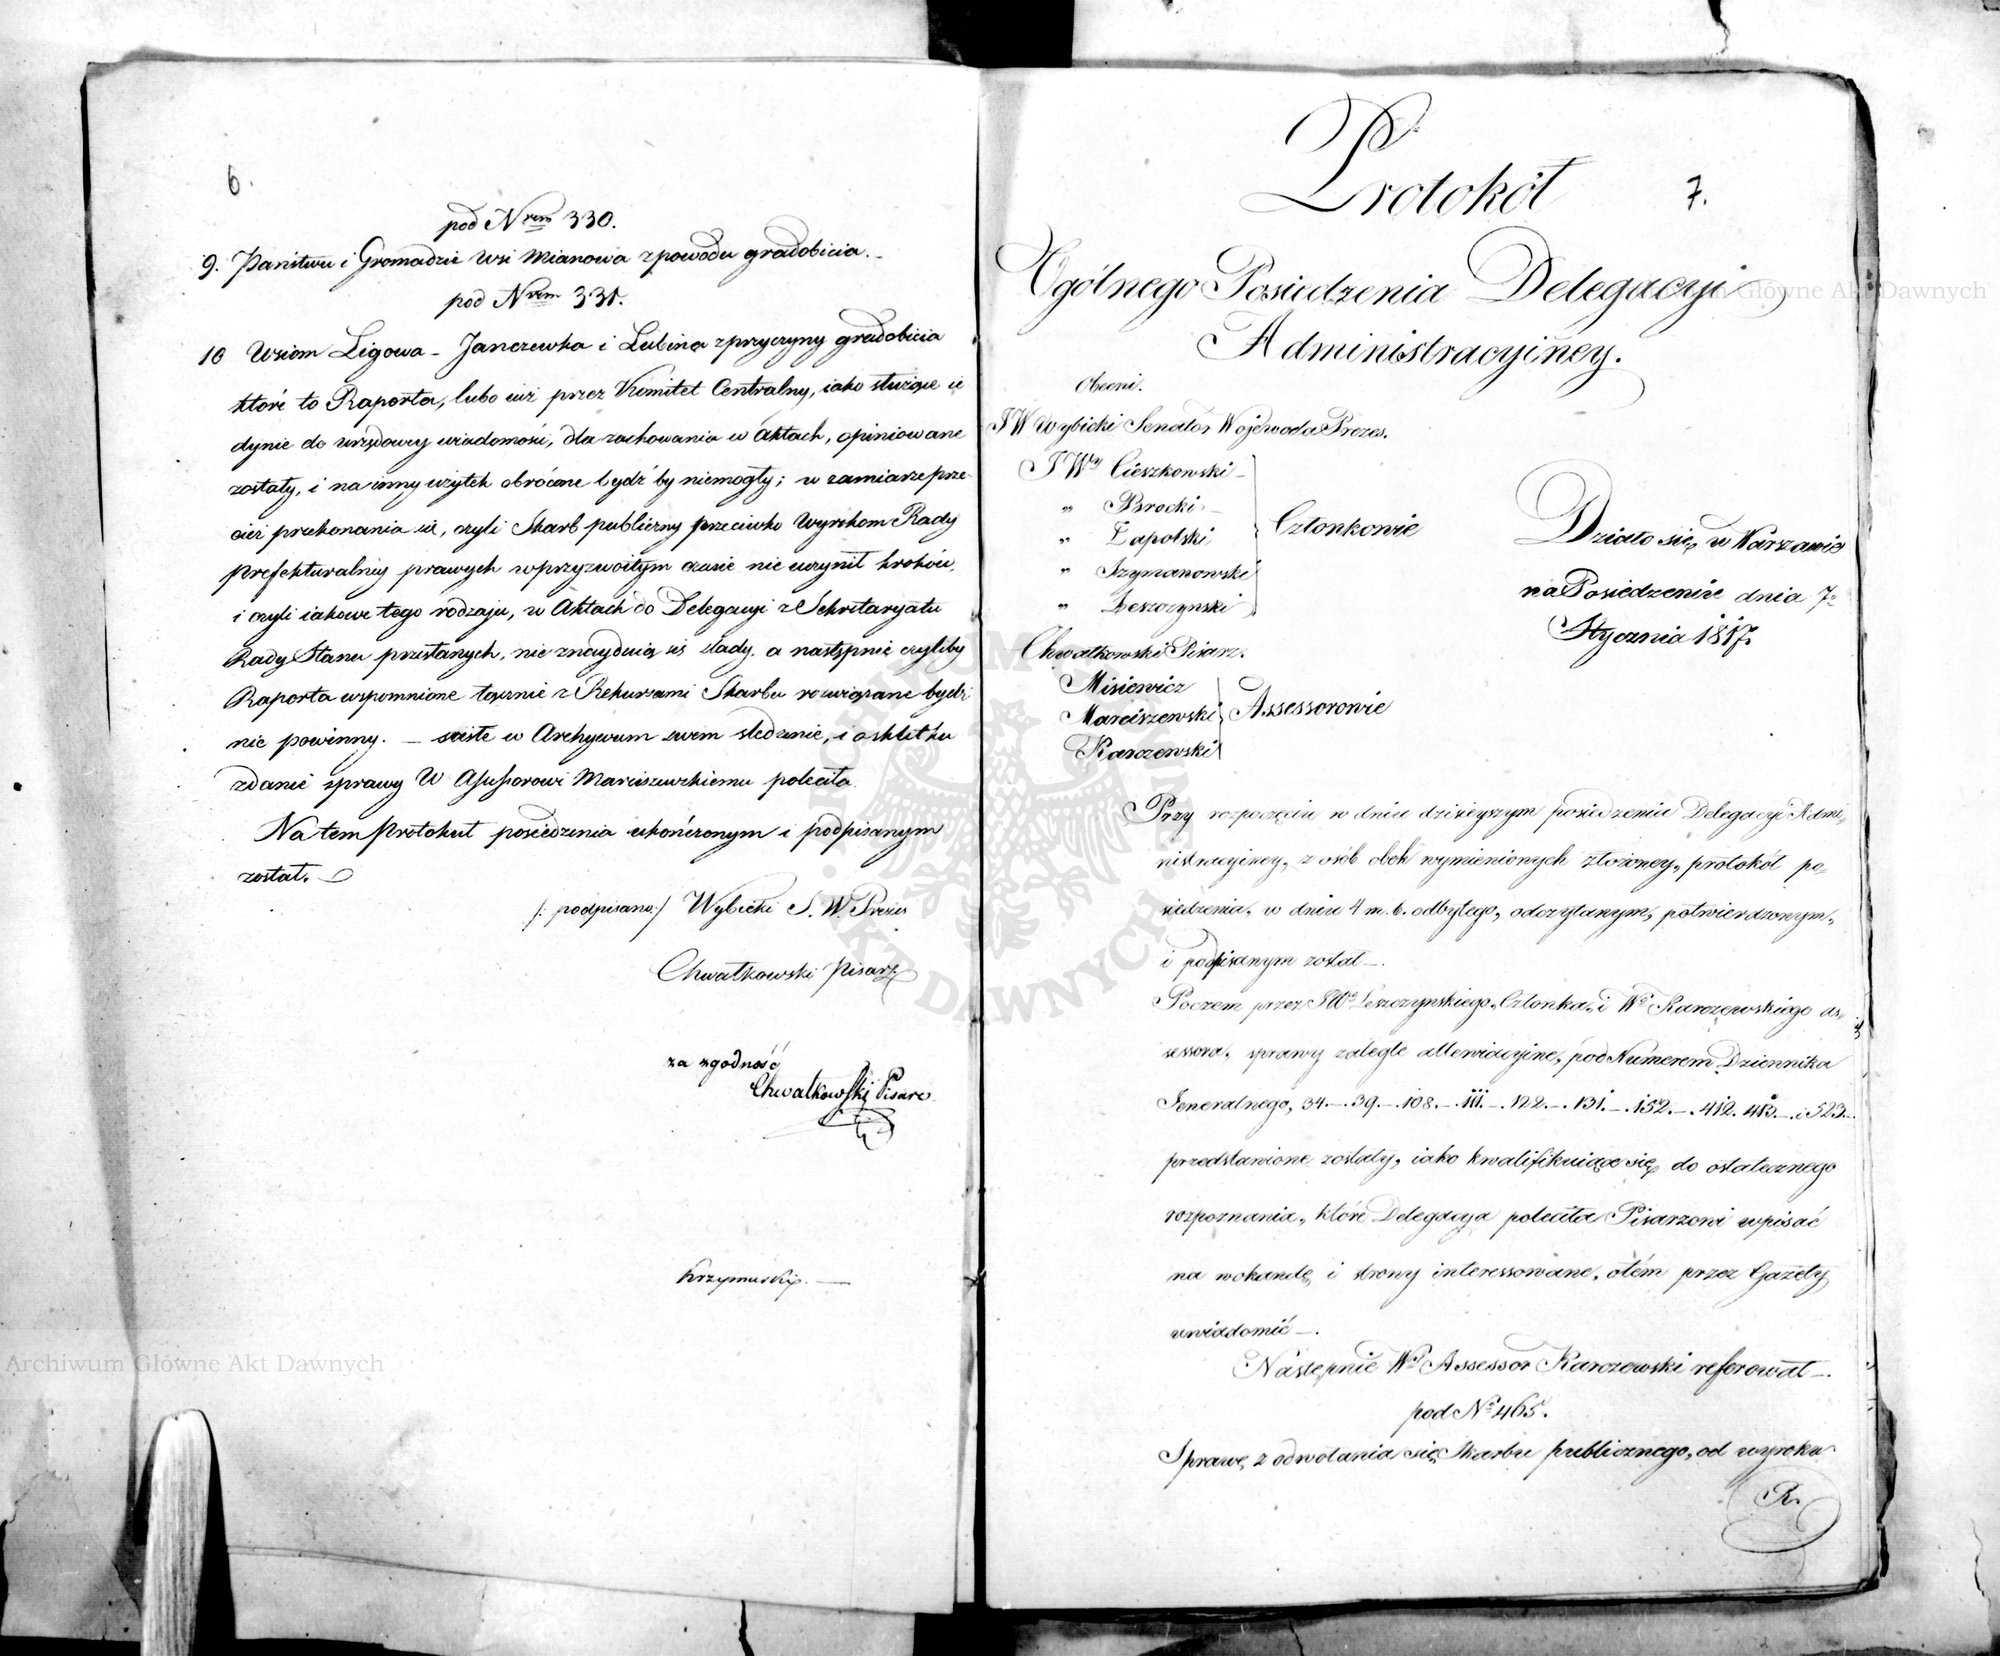 6.
pod N<sup>rem</sup> 330.
9. Państwu i Gromadzie wsi Mianowa z powodu gradobicia. –
pod N<sup>rem</sup> 331.
10 Wsiom Ligowa – Janczewka i Lubina z przyczyny gradobicia
które to Raporta, lubo iuż przez Komitet Centralny, iako służące ie
dynie do urzędowey wiadomości, dla zachowania w Aktach, opiniowane
zostały, i na inny użytek obrócone bydź by niemogły; w zamiarze prze-
cież przekonania się, czyli Skarb publiczny przeciwko Wyrokom Rady
prefekturalnéy prawych w przyzwoitym czasie nie uczynił kroków,
i czyli iakowe tego rodzaju, w Aktach do Delegacyi z Sekretaryatu
Rady Stanu przesłanych, nie znayduią się ślady, a następnie czyliby
Raporta wspomnione łącznie z Rekursami Skarbu rozwiązane bydź
nie powinny. – ściśle w Archywum swem śledzenie, i o skutku
zdanie sprawy W Assessorowi Marciszewskiemu poleciła.
Na tem protokuł posiedzenia ukończonym i podpisanym
został. –
/: podpisano :/ Wybicki S. W. Prezes
Chwałkowski Pisarz
za zgodność
Chwałkowski Pisarz
Krzymuski. –
7.
Protokół
Ogólnego Posiedzenia Delegacyi
Administracyiney.
Obecni.
JW Wybicki Senator Wojewoda Prezes.
JW<sup>ni</sup> Cieszkowski –
" Brocki –
" Zapolski
" Szymanowski
" Leszczynski
Członkowie
Chwałkowski Pisarz.
Misiewicz
Marciszewski
Karczewski
Assessorowie
Działo się w Warszawie
na Posiedzeniu dnia 7<sup>o</sup>
Stycznia 1817.
Przy rozpoczęciu w dniu dzisieyszym posiedzenia Delegacyi Admi-
nistracyiney, z osób obok wymienionych złożoney, protokół po-
siedzenia, w dniu 4 m. b. odbytego, odczytanym, potwierdzonym,
i podpisanym został –.
Poczem przez JW<sup>o</sup> Leszczynskiego, Członka, i W<sup>o</sup> Karczewskiego as-
sessora, sprawy zaległe allewiacyine, pod Numerem Dziennika
Jeneralnego, 34. –. 39. –. 108. –. 111. –. 122. –. 131. –. 152. –. 412. 415. –. i 523. –.
przedstawione zostały, iako kwalifikuiące się do ostatecznego
rozpoznania, które Delegacya poleciła Pisarzowi wpisać
na wokandę i strony interessowane, otém przez Gazety
uwiadomić –.
Następnie W<sup>y</sup> Assessor Karczewski referował –.
pod N<sup>o</sup> 465.
Sprawę z odwołania się Skarbu publicznego, od wyroku
R.
Archiwum Główne Akt Dawnych